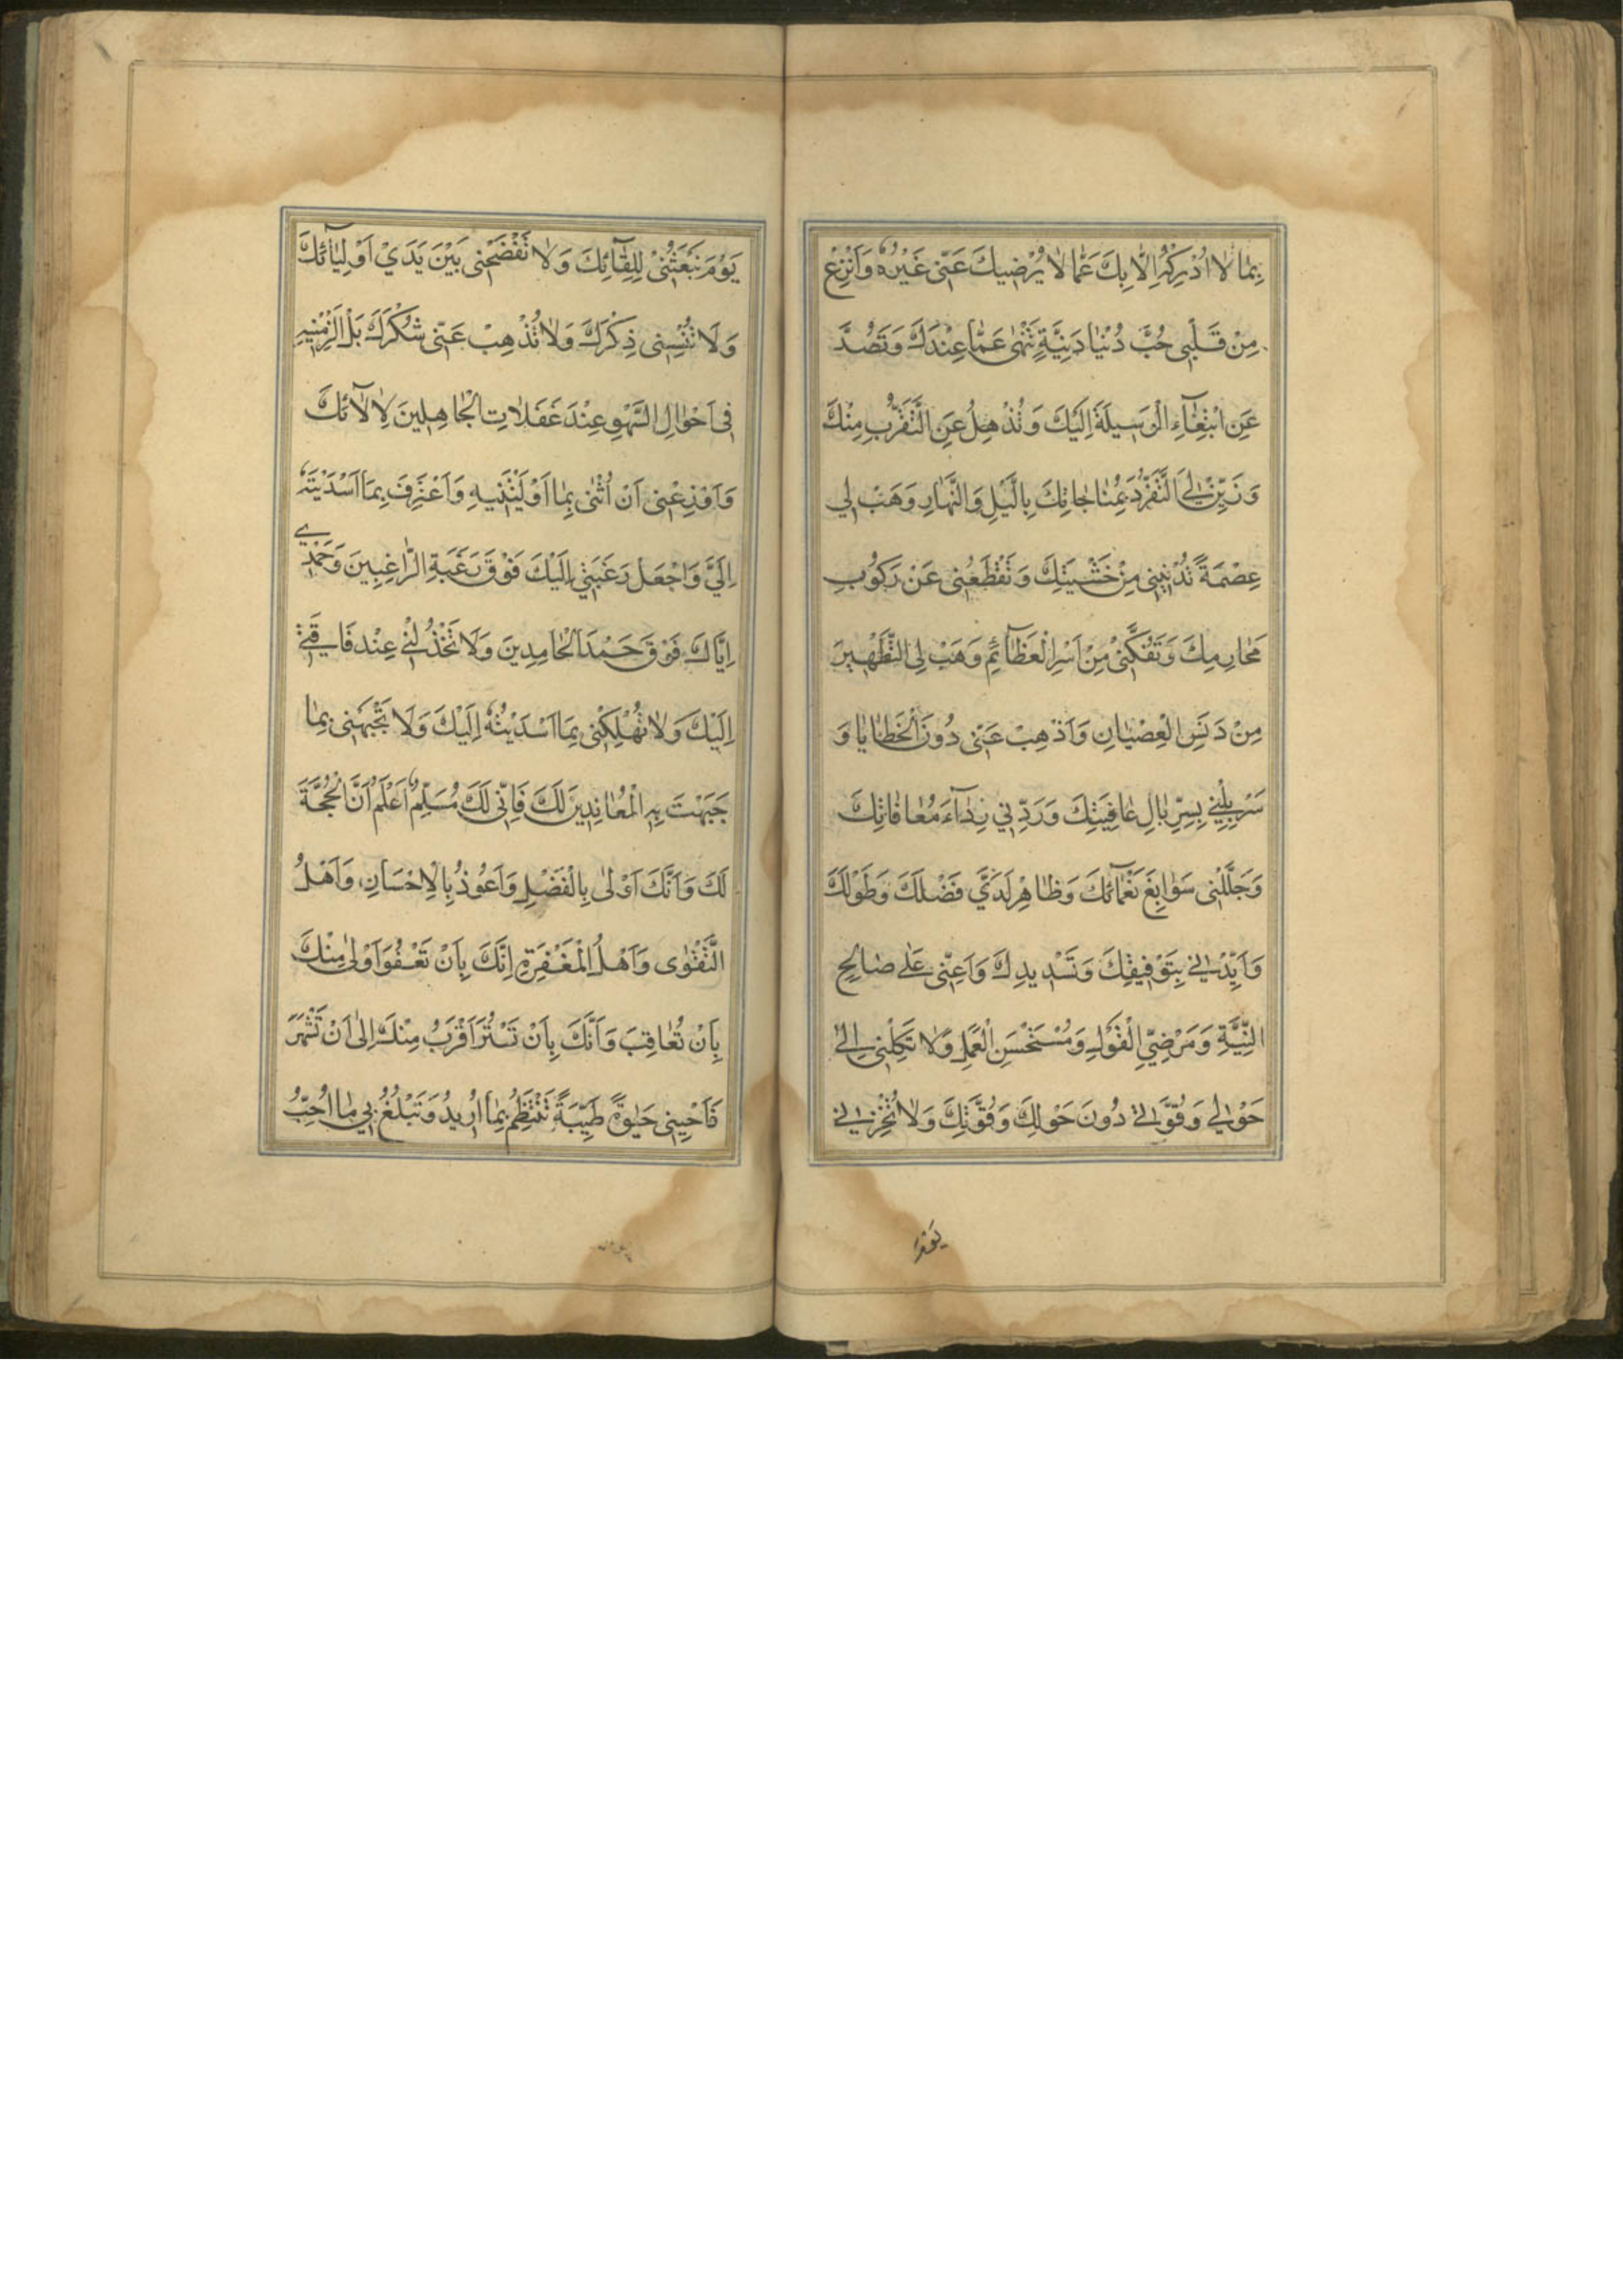 بِمَا لَا اُدْرِكُهُ اِلَّا بِكَ عَمَّا لَا يُرْضِيكَ عَنّى غَيْرُهُ وَانْزِعْ
مِنْ قَلْبِى حُبَّ دُنْيَا دَنِيَّةٍ تَنْهٰى عَمَّا عِنْدَكَ وَتَصُدُّ
عَنِ ابْتِغَآءِ الْوَسِيلَةِ اِلَيْكَ وَتُذْهِلُ عَنِ التَّقَرُّبِ مِنْكَ
وَزَيِّنْ لِىَ التَّفَرُّدَ بِمُنَاجَاتِكَ بِالَّيْلِ وَالنَّهَارِ وَهَبْ لِي
عِصْمَةً تُدْنِيْنِى مِنْ خَشْيَتِكَ وَتَقْطَعُنِى عَنْ رَكُوْبِ
مَحَارِمِكَ وَتَفُكَّنِىْ مِنْ اَسْرِ الْعَظَآئِمِ وَهَبْ لِى التَّطْهِيْرَ
مِنْ دَنَسِ الْعِصْيَانِ وَاَذْهِبْ عَنِّى دُونَ الْخَطَايَا وَ
سَرْبِلْنِى بِسِرْبَالِ عَافِيَتِكَ وَرَدِّنِي رِدَآءَ مُعَافَاتِكَ
وَجَلِّلْنِى سَوَابِغَ نَعْمَآئِكَ وَظَاهِرْ لَدَىَّ فَضْلَكَ وَطَوْلَكَ
وَاَيِّدْنِى بِتَوْفِيقِكَ وَتَسْدِيدِكَ وَاَعِنّى عَلٰى صَالِحِ
النِّيَّةِ وَمَرْضِيِّ الْقَوْلِ وَمُسْتَحْسَنِ الْعَمَلِ وَلَا تَكِلْنِى اِلٰى
حَوْلِي وَقُوَّتِى دُونَ حَوْلِكَ وَقُوَّتِكَ وَلَا تُخْزِنِى
يَوْمَ تَبْعَثُنِىْ لِلِقَآئِكَ وَلَا تَفْضَحْنِى بَيْنَ يَدَيْ اَوْلِيَآئِكَ
وَلَا تُنْسِنِى ذِكْرَكَ وَلَا تُذْهِبْ عَنّى شُكْرَكَ بَلْ اَلْزِمْنِيهِ
فِى اَحْوَالِ السَّهْوِ عِنْدَ غَفَلَاتِ الْجَاهِلِينَ لِاٰلَآئِكَ
وَاَوْزِعْنِى اَنْ اُثْنِىَ بِمَا اَوْلَيْتَنِيهِ وَاَعْتَرِفَ بِمَا اَسْدَيْتَهُ
اِلَيَّ وَاجْعَلْ رَغْبَتِيْ اِلَيْكَ فَوْقَ رَغْبَةِ الرَّاغِبِينَ وَحَمْدِي
اِيَّاكَ فَوْقَ حَمْدِ الْحَامِدِينَ وَلَا تَخْذُلْنِى عِنْدَ فَاقَتِى
اِلَيْكَ وَلَا تُهْلِكْنِى بِمَا اَسْدَيْتُهُ اِلَيْكَ وَلَا تَجْبَهْنِى بِمَا
جَبَهْتَ بِهِ الْمُعَانِدِينَ لَكَ فَاِنّى لَكَ مُسَلِّمٌ اَعْلَمُ اَنَّ الْحُجَّةَ
لَكَ وَاَنَّكَ اَوْلٰى بِالْفَضْلِ وَاَعْوَدُ بِالْاِحْسَانِ وَاَهْلُ
التَّقْوٰى وَاَهْلُ الْمَغْفِرَةِ اِنَّكَ بِاَنْ تَعْفُوَ اَوْلٰى مِنْكَ
بِاَنْ تُعَاقِبَ وَاَنَّكَ بِاَنْ تَسْتُرَ اَقْرَبُ مِنْكَ اِلٰى اَنْ تَشْهَرَ
فَاَحْيِنِى حَيٰوةً طَيِّبَةً تَنْتَظِمُ بِمَا اُرِيدُ وَتَبْلُغُ بِي مَا اُحِبُّ